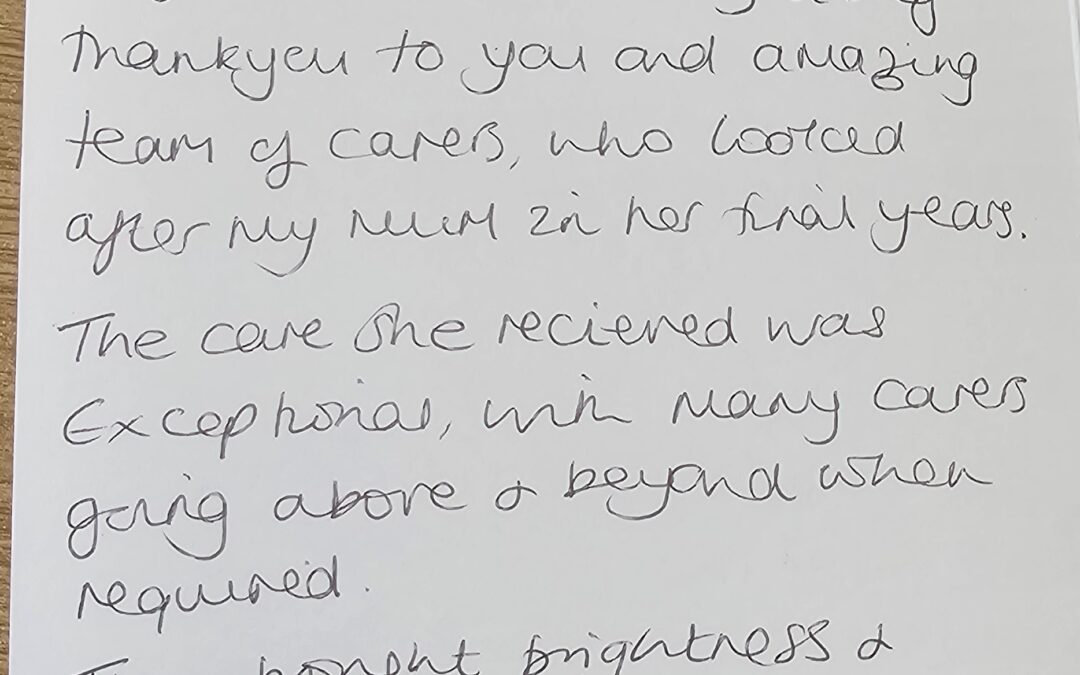 Thankyou to you and amazing
team of carers, who looked
after my mum in her final years.
The care she recieved was
Exceptional, with many carers
going above & beyond when
required.
brightness &